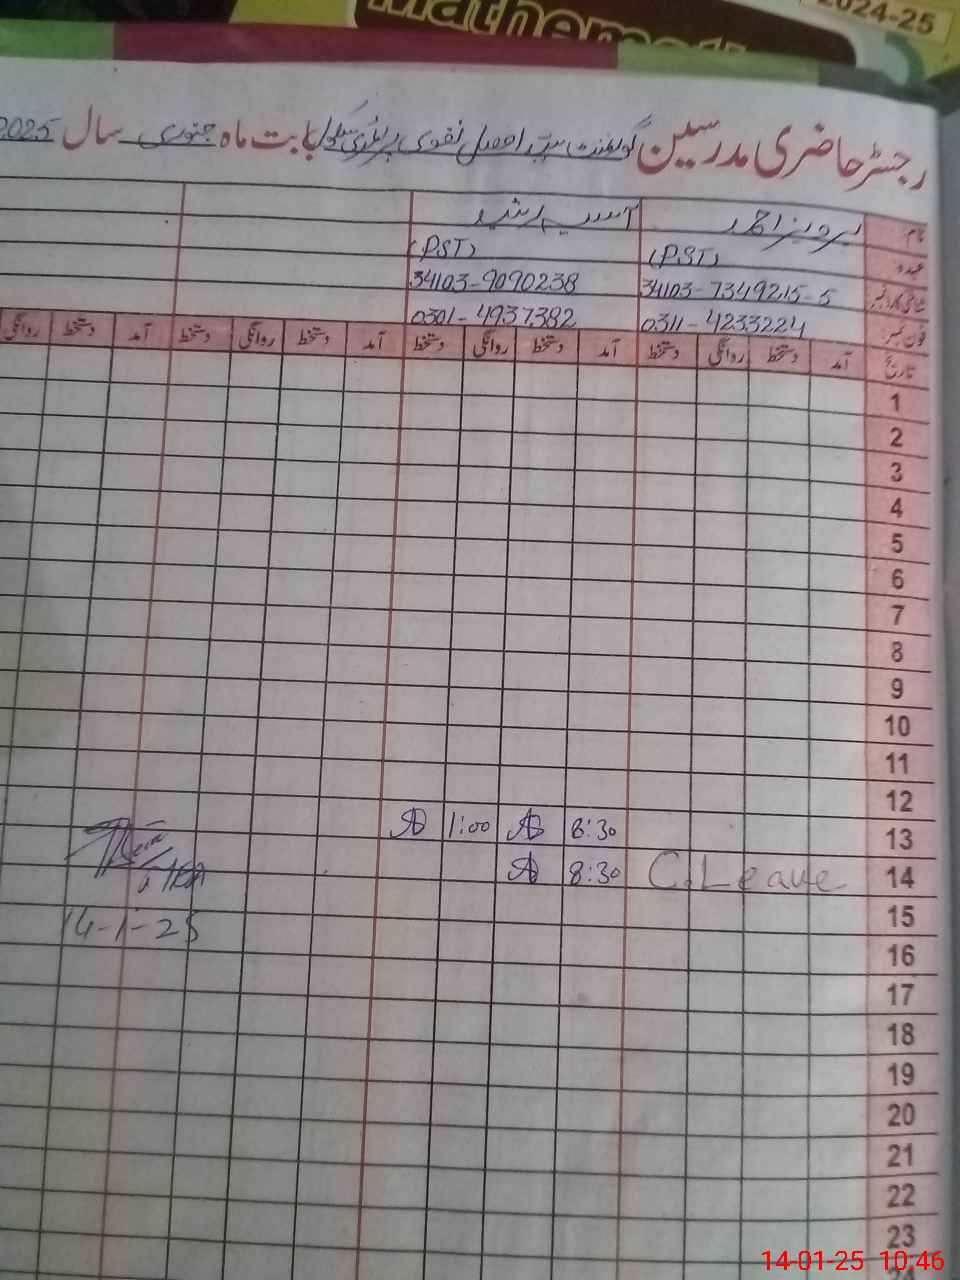 Mathemati
2024-25
رجسٹر حاضری مدرسین گورنمنٹ سید افضل نقوی پرائمری سکول بابت ماہ جنوری سال 2025
نام پرویز احمد آسیہ رشید
عہدہ (PST) (PST)
شناختی کارڈ نمبر 34103-7349215-5 34103-9090238
فون نمبر 0311-4233224 0301-4937382
تاریخ آمد دستخط روانگی دستخط آمد دستخط روانگی دستخط آمد دستخط روانگی دستخط آمد دستخط روانگی
1
2
3
4
5
6
7
8
9
10
11
12
13 8:30 1:00
14 C.Leave 8:30
14-1-25
15
16
17
18
19
20
21
22
23
24
14-01-25 10:46